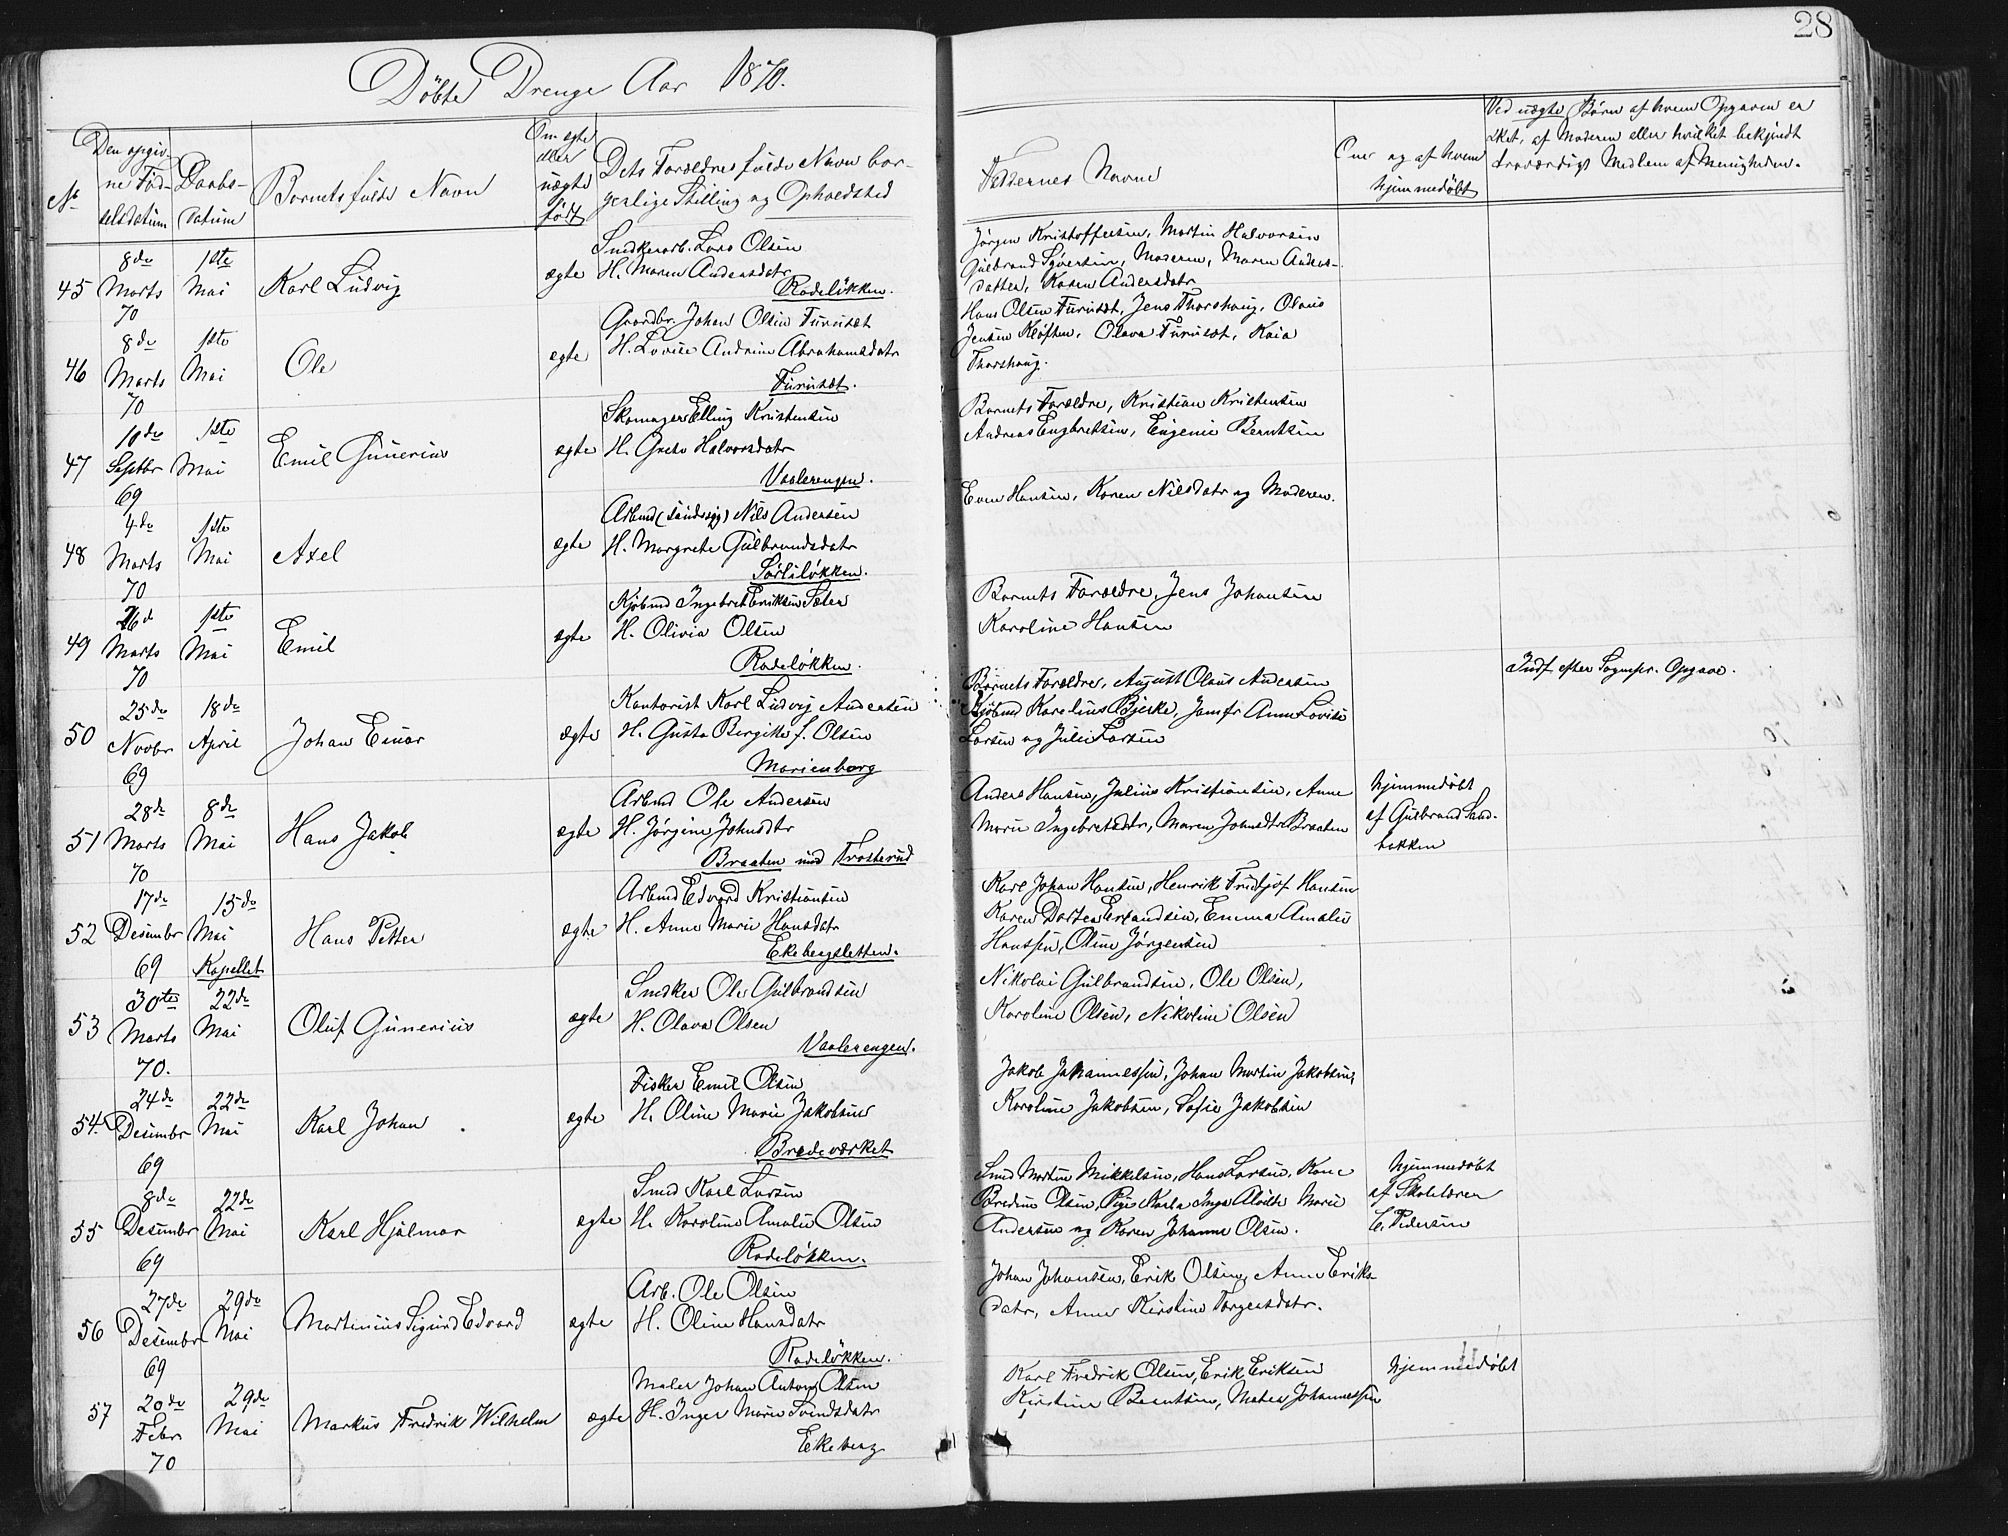 28
Døbte Drenge Aar 1870.
No
Den opgiv-
ne Fød-
selsdatum
Daabs-
datum
Barnets fulde Navn
Om ægte
eller
uægte
født
Dets Forældres fulde Navn bor-
gerlige Stilling og Opholdsted
Faddernes Navne
Om og af hvem
hjemmedøbt
Ved uægte Børn af hvem Opgaven er
sket, af Moderen eller hvilket bekjendt
troværdigt Medlem af Menigheden.
45
8de
Marts
70
1ste
Mai
Karl Ludvig
ægte
Snedkerarb. Lars Olsen
H. Maren Andersdatr
Rodeløkken.
Jørgen Kristoffersen, Martin Halvorsen
Gulbrand Syversen, Moderen, Maren Anders-
datter, Karen Andersdatr
46
8de
Marts
70
1ste
Mai
Ole
ægte
Gaardbr. Johan Olsen Furuset
H. Lovise Andrine Abrahamsdatr
Furuset.
Hans Olsen Furuset, Jens Thorshaug, Olaus
Jensen Kløften, Olava Furuset, Kaia
Thorshaug.
47
10de
Septbr
69
1ste
Mai
Emil Gunerius
ægte
Skomager Elling Kristensen
H. Grete Halvorsdatr
Vaalerengen.
Barnets Forældre, Kristian Kristensen
Andreas Engbretsen, Eugenie Berntsen
48
4de
Marts
70
1ste
Mai
Axel
ægte
Arbmd Nils Andersen
H. Margrete Gulbrandsdatr
Sørliløkken.
Even Hansen, Karen Nilsdatr og Moderen.
49
26d
Marts
70
1ste
Mai
Emil
ægte
Kjøbmd Ingebret Eriksen Sæter
H. Olivia Olsen
Rodeløkken.
Barnets Forældre, Jens Johansen
Karoline Hansen
50
25de
Novbr
69
18de
April
Johan Einar
ægte
Kontorist Karl Ludvig Andersen
H. Gusta Birgitte f. Olsen
Marienborg
Barnets Forældre, August Olaus Andersen
Kjøbmd Karelius Bjerke, Jomfr Anne Lovise
Larsen og Julie Larsen
Indf efter Sognepr. Opgave.
51
28de
Marts
70
8de
Mai
Hans Jakob
ægte
Arbmd Ole Andersen
H. Jørgine Johnsdtr
Braaten und Trosterud
Anders Hansen, Julius Kristiansen, Anne
Marie Ingebretsdatr, Maren Johnsdtr Braaten
hjemmedøbt
af Gulbrand Sand-
bakken
52
17de
Desember
69
15de
Mai
Kapellet
Hans Petter
ægte
Arbmd Edvard Kristiansen
H. Anne Marie Hansdatr
Ekebergsletten.
Karl Johan Hansen, Henrik Fridtjof Hansen
Karen Dortea Erlandsen, Emma Amalie
Hanssen, Oline Jørgensen
53
30te
Marts
70.
22de
Mai
Oluf Gunerius
ægte
Snedker Ole Gulbrandsen
H. Olava Olsen
Vaalerengen.
Nikolai Gulbrandsen, Ole Olsen,
Karoline Olsen, Nikoline Olsen
54.
24de
Desembr
69
22de
Mai
Karl Johan
ægte
Fisker Emil Olsen
H. Oline Marie Jakobsen
Bredeværket
Jakob Johannessen, Johan Martin Jakobsen,
Karoline Jakobsen, Sofie Jakobsen
55
8de
Desember
69
22de
Mai
Karl Hjalmar
ægte
Smed Karl Larsen
H. Karoline Amalie Olsen
Rodeløkken.
Smed Morten Mikkelsen, Hans Larsen, Kone
Bredine Olsen, Pige Karla Inga Alvilde Marie
Andersen og Karen Johanne Olsen.
hjemmedøbt
af Skolelærer
C. Pedersen
56
27de
Desember
69
29de
Mai
Martinius Sigurd Edvard
ægte
Arb. Ole Olsen
H. Oline Hansdatr
Rodeløkken.
Johan Johansen, Erik Olsen, Anne Eriks-
datr, Anne Kirstine Torgersdatr.
57
20de
Febr
70
29de
Mai
Markus Fredrik Wilhelm
ægte
Maler Johan Anton Olsen
H. Inger Marie Svendsdatr
Ekeberg
Karl Fredrik Olsen, Erik Eriksen
Kirstine Berntsen, Matea Johannessen
hjemmedøbt